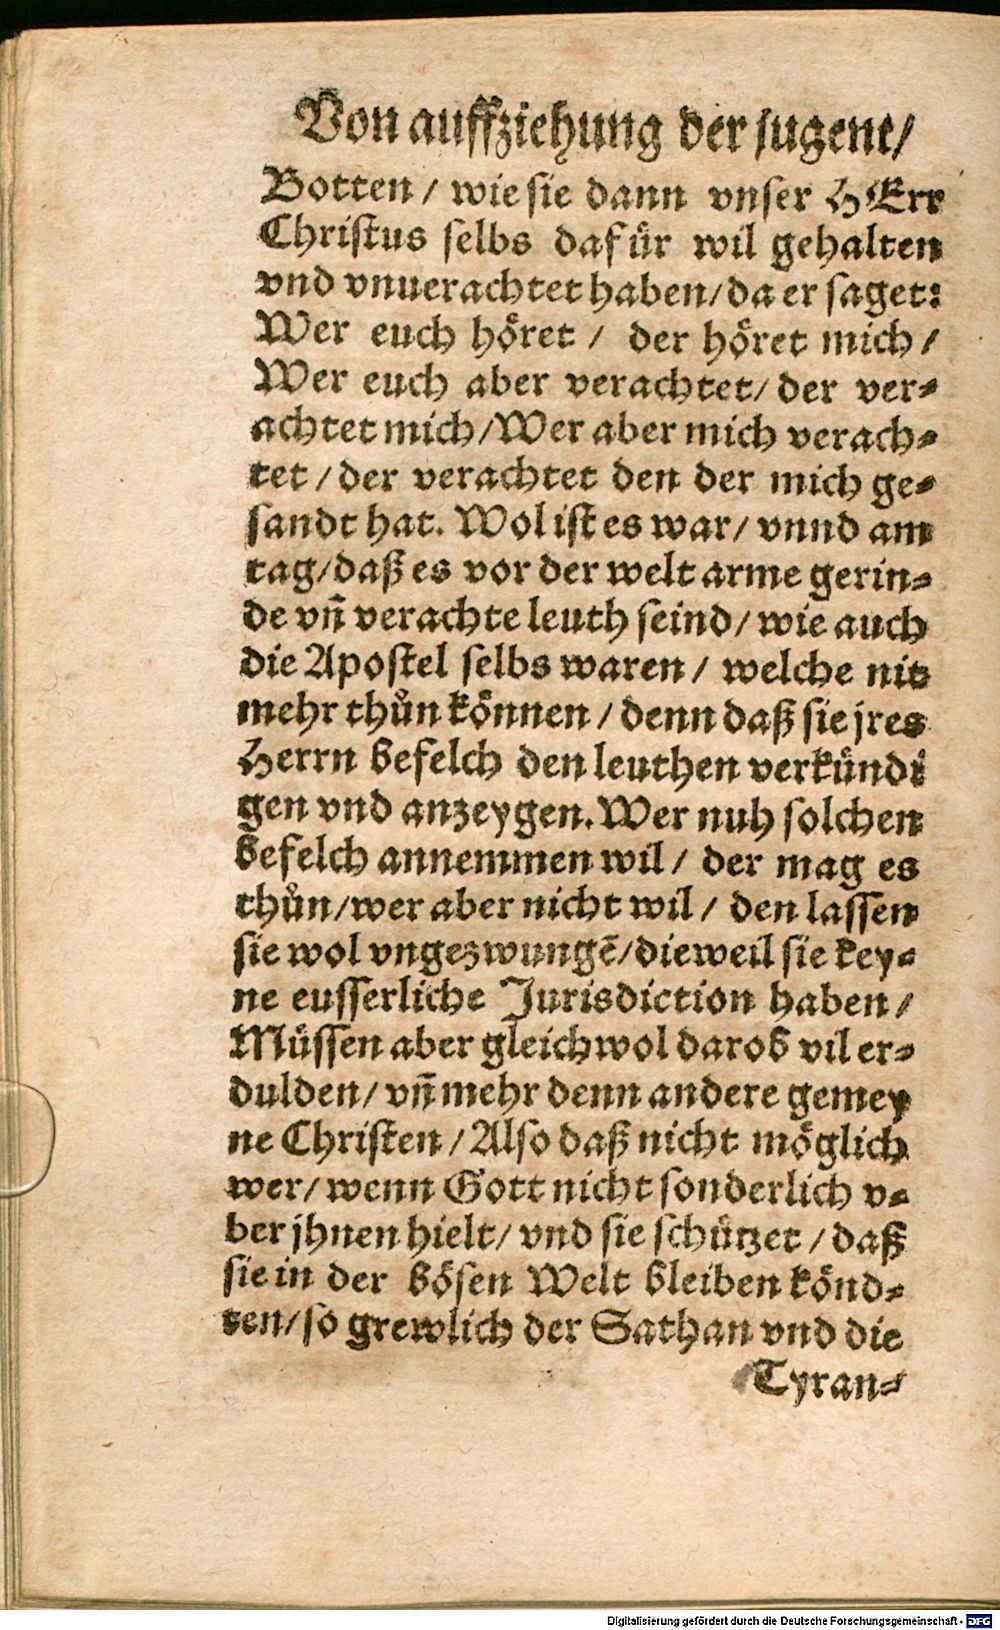 Von auffziehung der jugent/
Botten / wie sie dann vnser HErr
Christus selbs dafür wil gehalten
vnd vnuerachtet haben/da er saget:
Wer euch höret / der höret mich /
Wer euch aber verachtet/ der ver⸗
achtet mich/Wer aber mich verach⸗
tet / der verachtet den der mich ge⸗
sandt hat. Wol ist es war/ vnnd am
tag/daß es vor der welt arme gerin⸗
de vñ verachte leuth seind/ wie auch
die Apostel selbs waren / welche nit
mehr thůn können / denn daß sie jres
Herrn befelch den leuthen verkündi
gen vnd anzeygen. Wer nuh solchen
befelch annemmen wil / der mag es
thůn/wer aber nicht wil / den lassen
sie wol vngezwungẽ/dieweil sie key⸗
ne eusserliche Jurisdiction haben /
Müssen aber gleichwol darob vil er⸗
dulden/ vñ mehr denn andere gemey
ne Christen / Also daß nicht möglich
wer/ wenn Gott nicht sonderlich v⸗
ber jhnen hielt/ vnd sie schützet / daß
sie in der bösen Welt bleiben könd⸗
ten/ so grewlich der Sathan vnd die
Tyran⸗
Digitalisierung gefördert durch die Deutsche Forschungsgemeinschaft - DFG